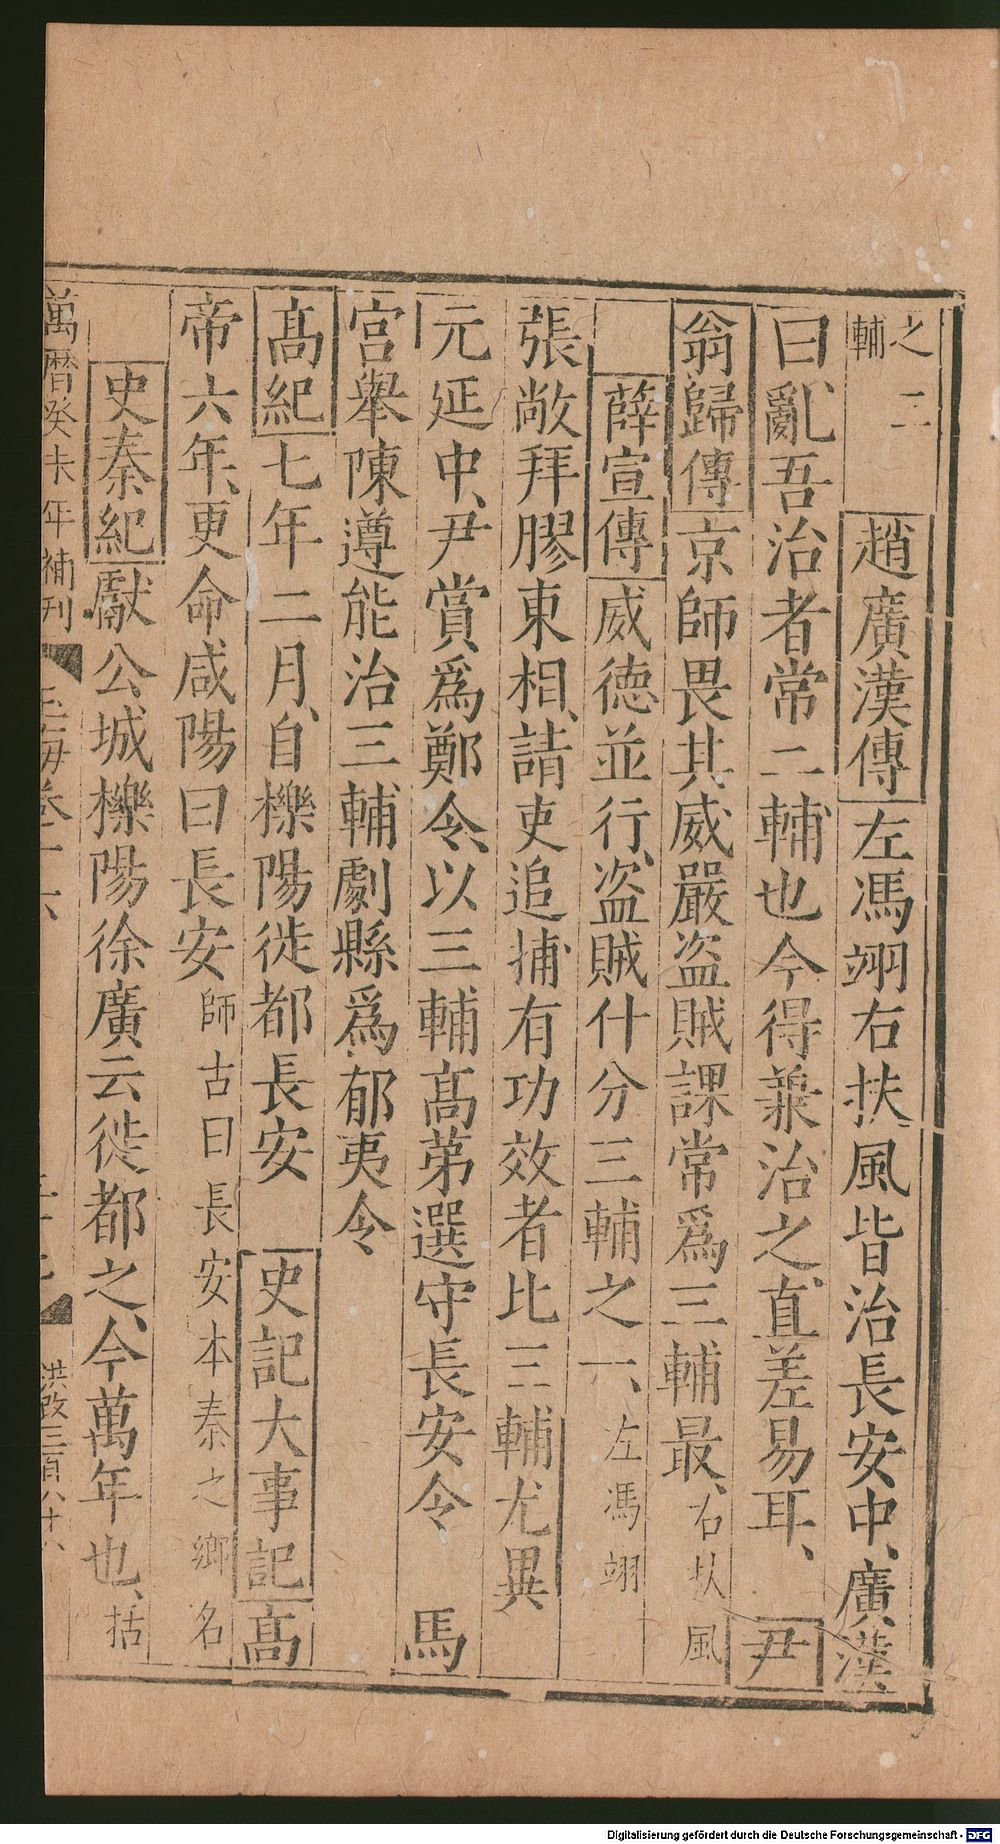 之二
輔
趙廣漢傳左馮翊右扶風皆治長安中、廣漢
曰亂吾治者常二輔也今得兼治之、直差易耳、尹
翁歸傳京師畏其威嚴盜賊課常爲三輔最、右扶風
薛宣傳威德並行、盜賊什分三輔之一、左馮翊
張敞拜膠東相、請吏追捕有功效者比三輔尤異
元延中、尹賞爲鄭令、以三輔高第選守長安令 馬
宮舉陳遵能治三輔劇縣爲郁夷令
高紀七年二月、自櫟陽徙都長安 史記大事記高
帝六年、更命咸陽曰長安師古曰長安本秦之鄉名
史秦紀獻公、城櫟陽徐廣云徙都之、今萬年也、括
萬曆癸未年補刊 玉海卷十六 洪改三百八十八
Digitalisierung gefördert durch die Deutsche Forschungsgemeinschaft - DFG